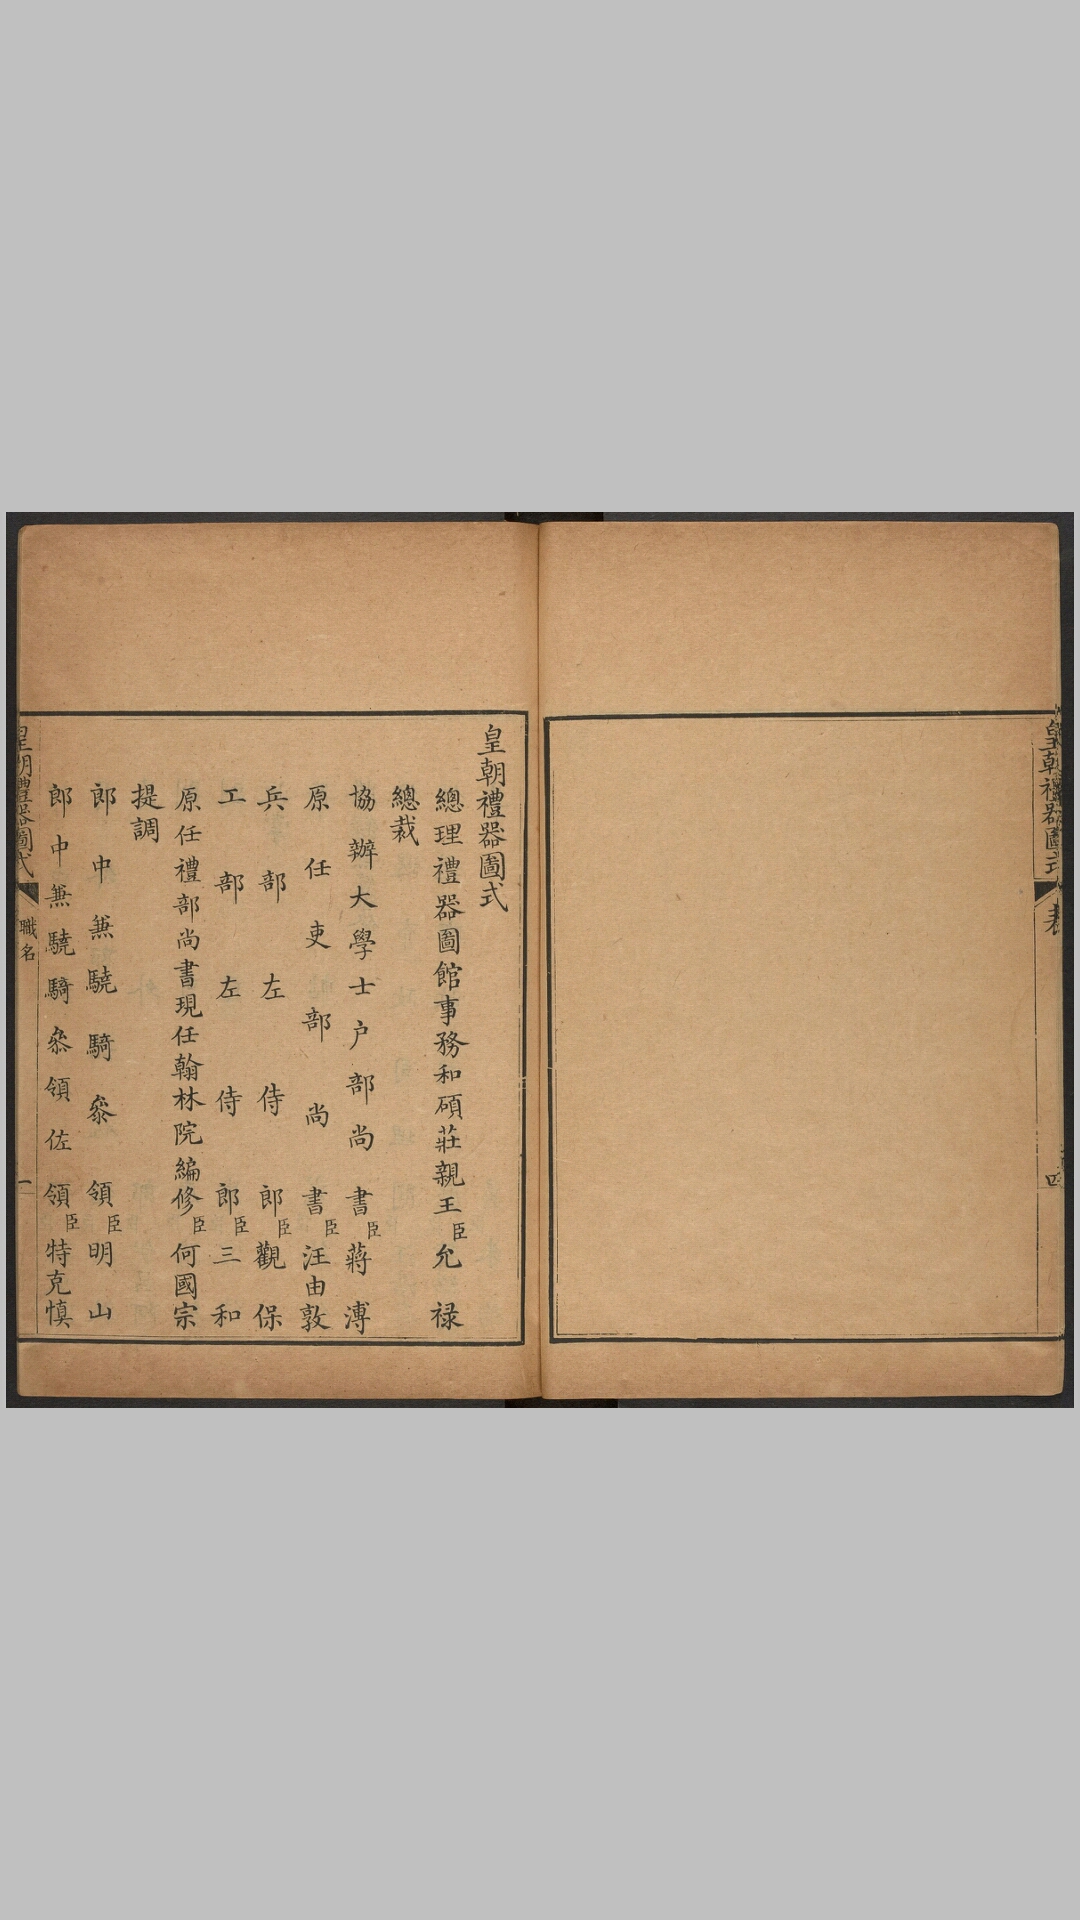 皇朝禮器圖式
表
四
皇朝禮器圖式
總理禮器圖館事務和碩莊親王臣允祿
總裁
協辦大學士户部尚書臣蔣溥
原任吏部尚書臣汪由敦
兵部左侍郎臣觀保
工部左侍郎臣三和
原任禮部尚書現任翰林院編修臣何國宗
提調
郎中兼驍騎叅領臣明山
郎中兼驍騎叅領佐領臣特克慎
皇朝禮器圖式
職名
一